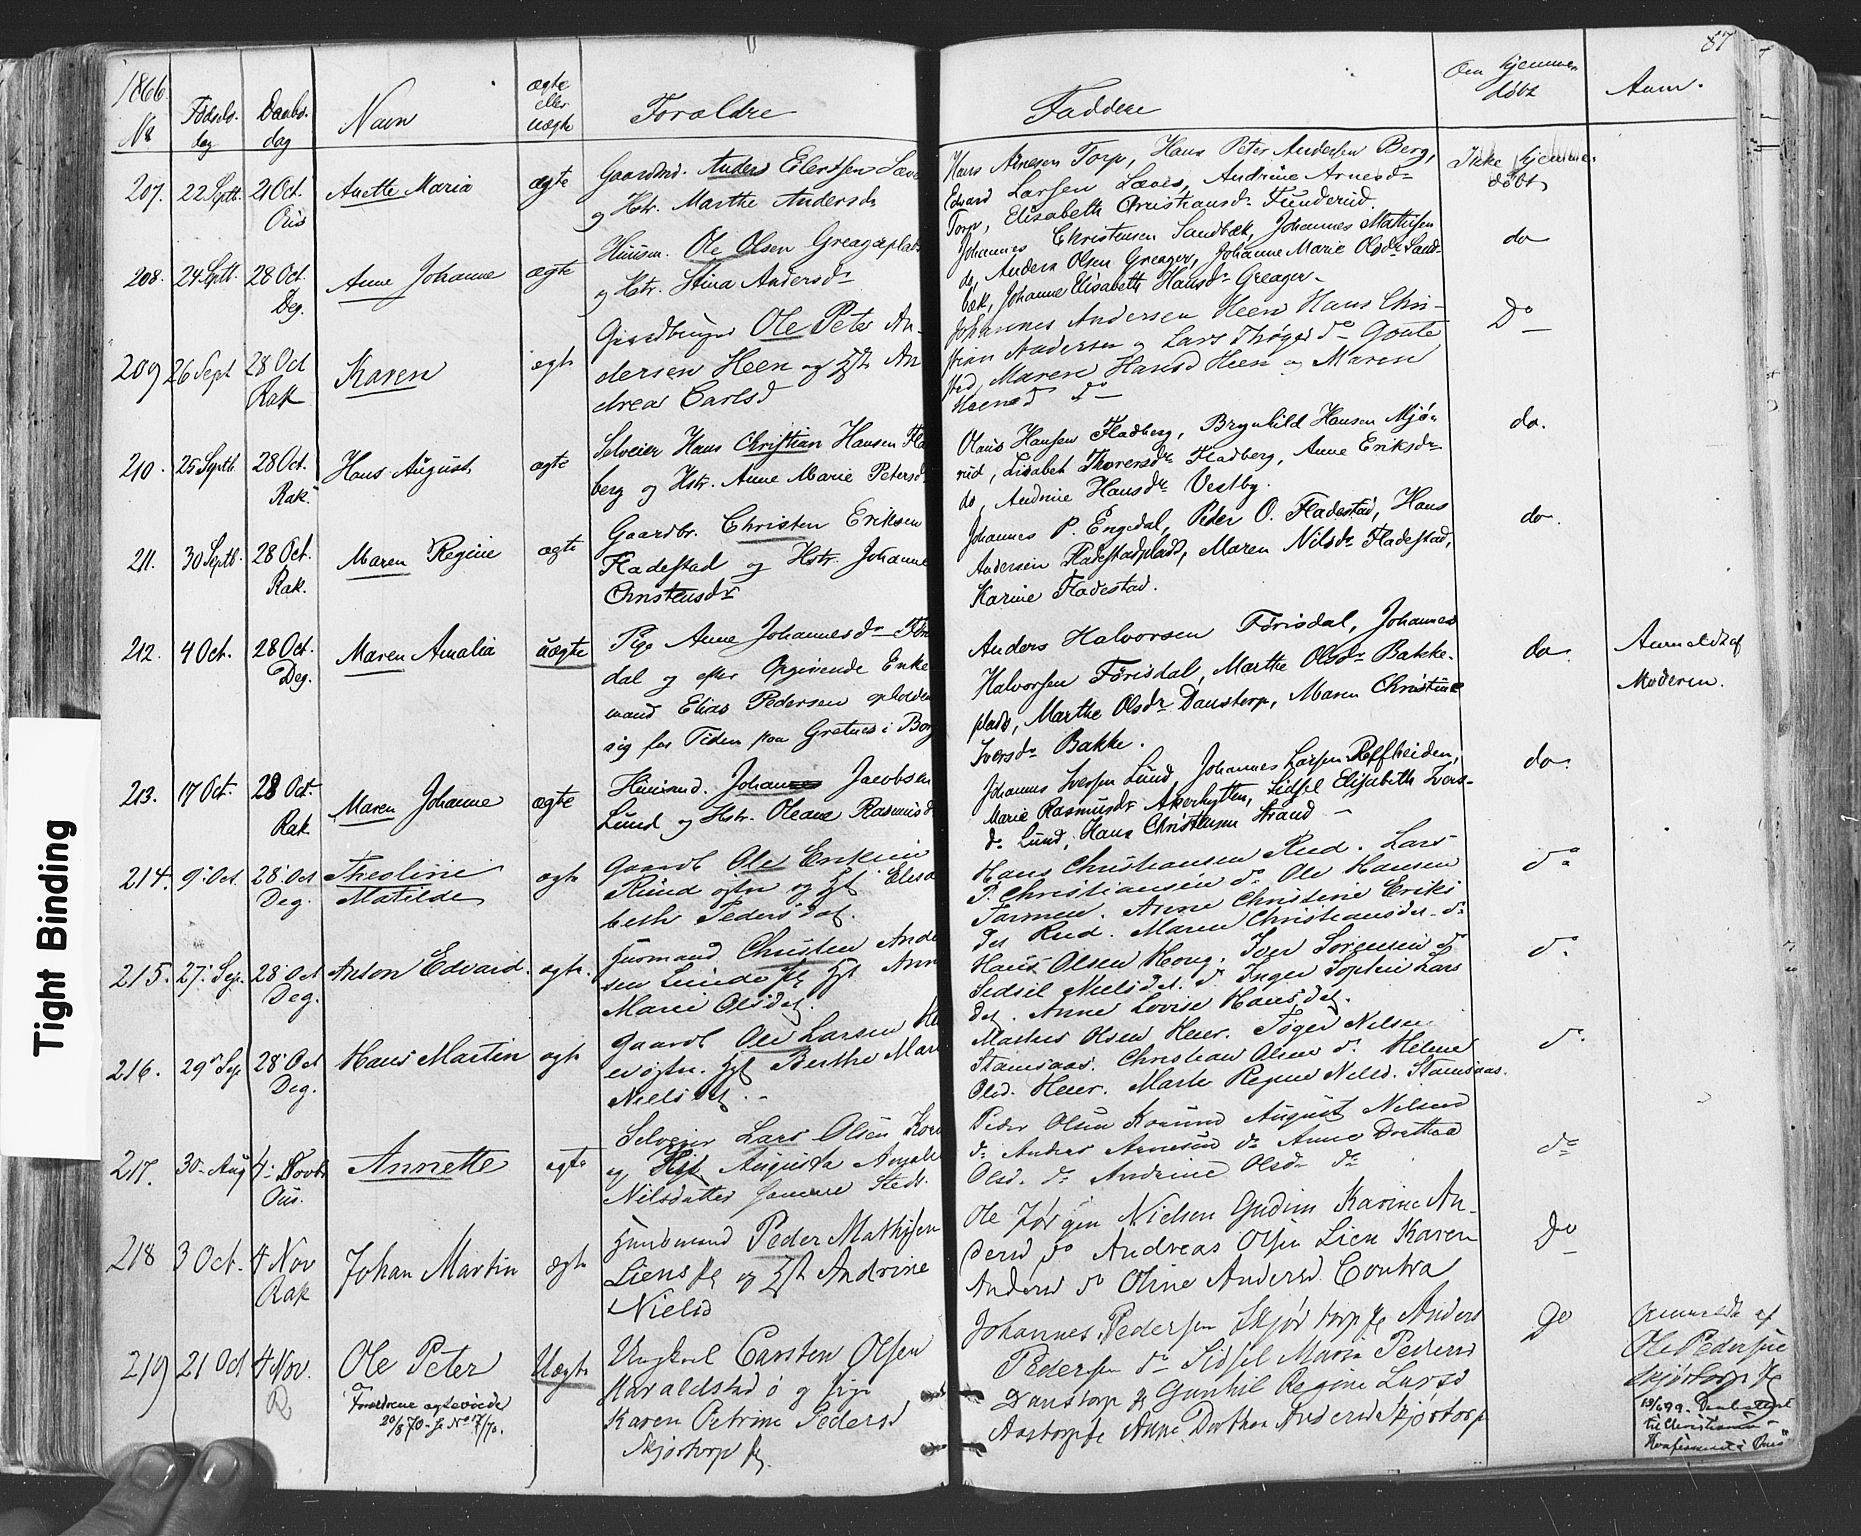 87
1866.
No
Fødsels-
dag
Daabs-
dag
Navn
ægte
eller
uægte
Forældre
Faddere
Om hjemme-
døbt
Anm.
207. 22 Septb. 21 Oct.
Onsø
Anette Maria
ægte
Gaardmd. Anders Eilertsen
og Hstr. Marthe Andersdr
Hans Arnesen Torp, Hans Peter Andersen Berg,
Edvard Larsen Lævis, Andrine Arnesdr
Torp, Elisabeth Christiansdr Funderud.
Ikke hjemme-
døbt
208. 24 Septb. 28 Oct.
Deg.
Anne Johanne
ægte
Huusm. Ole Olsen Greagerplads
og Hstr. Stina Andersdr
Johannes Christensen Sandbæk, Johannes Mathisen
do, Anders Olsen Greager, Johanne Marie Olsdr Sand-
bæk, Johanne Elisabeth Hansdr Greager.
do
209 26 Sept 28 Oct
Rak
Karen
ægte
Gaardbruger Ole Peter An-
dersen Heen og Hst An
drea Carlsd
Johannes Andersen Heen Hans Chri-
stian Andersen og Lars Thøges do Goute
sted, Maren Hansd Heen og Maren
do
Do
210. 25 Septb. 28 Oct.
Rak.
Hans August
ægte
Selveier Hans Christian Hansen Fla
berg og Hstr. Anne Marie Petersd
Olaus Hansen Fladberg, Brynhild Hansen Mjø-
rud, Lisabet Thorersdr Fladberg, Anne Eriksdr
do, Andrine Hansdr Vestby.
do.
211. 30 Septb. 28 Oct.
Rak.
Maren Regine
ægte
Gaardbr. Christen Eriksen
Fladestad og Hstr. Johanne
Christensdr
Johannes P. Engedal, Peder O. Fladestad, Hans
Andersen Fladestadplads, Maren Nilsdr Fladestad,
Karine Fladestad.
do.
212. 4 Oct. 28 Oct.
Deg.
Maren Amalia
uægte
Pige Anne Johannesdr Føris
dal og efter Opgivende Enke
mand Elias Pedersen opholden
sig for Tiden paa Gretnes i Borg
Anders Halvorsen Førisdal, Johannes
Halvorsen Førisdal, Marthe Olsdr Bakke-
plads, Marthe Olsdr Danstorp, Maren Christine
Iversdr Bakke.
do.
Anmeldt af
Moderen.
213. 17 Oct. 28 Oct.
Rak
Maren Johanne
ægte
Huusmd. Johannes Jacobsen
Lund og Hstr. Oleane Rasmusd
Johannes Iversen Lund, Johannes Larsen Refheiden,
Marie Rasmusdr Akerhytten, Sidsel Elisabeth Ivers-
dr Lund, Hans Christensen Strand
do.
214. 9 Oct. 28 Oct
Deg.
Theoline
Matilde
ægte
Gaardb Ole Eriksen
Ruud og Hst Elisa
beth Pedersdat.
Hans Christiansen Rud. Lars
P. Christiansen do Ole Hansen
Tormen. Anne Christine Eriks
dat Rud. Maren Christiansdat do
do
215. 27 Sep. 28 Oct
Deg.
Anton Edvard.
ægte.
Husmand Christen Ander
sen Lunde og Hst Anne
Marie Olsdat.
Hans Olsen Houg. Iver Sorensen do
Sidsil Nielsdat. do Inger Sophie Lars
dat. Anne Lovise Hansdat.
do
216. 29 Sep 28 Oct
Deg.
Hans Martin
ægte
Gaardb Ole Larsen
Hst Berthe Marie
Nielsdat.
Mathis Olsen Heier. Tøger Nilsen
Stamsaas. Christian Olsen do. Helene
Olsd. Heier. Marte Regine Nilsd. Stamsaas.
do
217. 30 Aug 4 Novbr
Ons.
Annette
ægte
Selveier Lars Olsen
og Hst Augusta Amalie
Nilsdatter samme Sted.
Peder Olsen August Nilsen
do Anders Arnesen do Anne Dorthea
Olsd. do Andrine Olsdr do
do
218 3 Oct. 4 Nov
Rak
Johan Martin
ægte
Husmand Peder Mathisen
Liens og Hst Andrine
Nielsd
Ole Jørgen Nielsen Gudim Karine An-
dersd do Andreas Olsen Lien Karen
Andersd do Oline Andersd Contra
Do
219 21 Oct 4 Nov.
R
Ole Peter
Forældrene ægteviede
20/8 70 – se No 17/70.
Uægte
Ungkarl Carsten Olsen
Haraldstad ø og Pige
Karen Petrine Pedersd
Skjørtorp
Johannes Pedersen Skjørtorp Anders
Pedersen do Sidsel Maria Pedersd
Danstorp Gunhil Regine Larsd
Aastorp Anne Dorthea Andersd Skjørtorp
Do
Anmeldt af
Ole Pedersen
Skjørtorp
til Christiania
Tight Binding